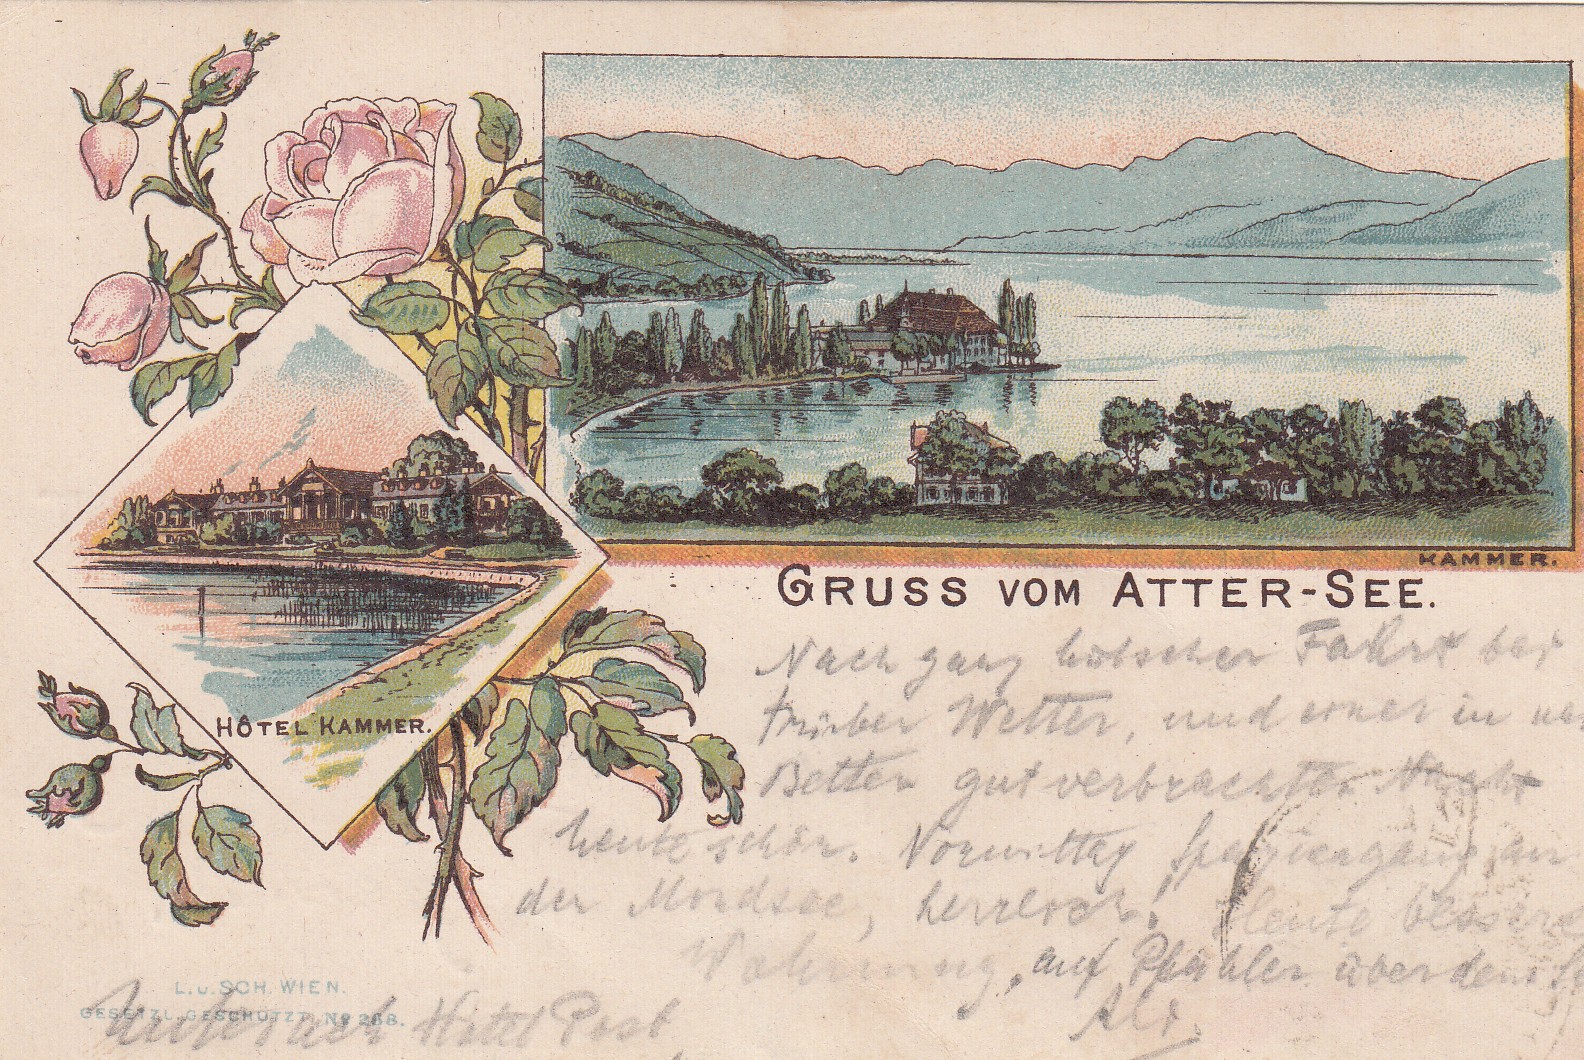 KAMMER.
GRUSS VOM ATTER-SEE.
HÔTEL KAMMER.
Nach ganz hübscher Fahrt bei
trüber Wetter, und einer in
Betten gut verbrachten Nacht
heute schön. Vormittag Spaziergang an
der Mondsee, herrlich! Heute
Wohnung, auf Pfähler über dem
L.u.SCH. WIEN.
GESETZL. GESCHÜTZT. No 268.
Unterach Hôtel Post